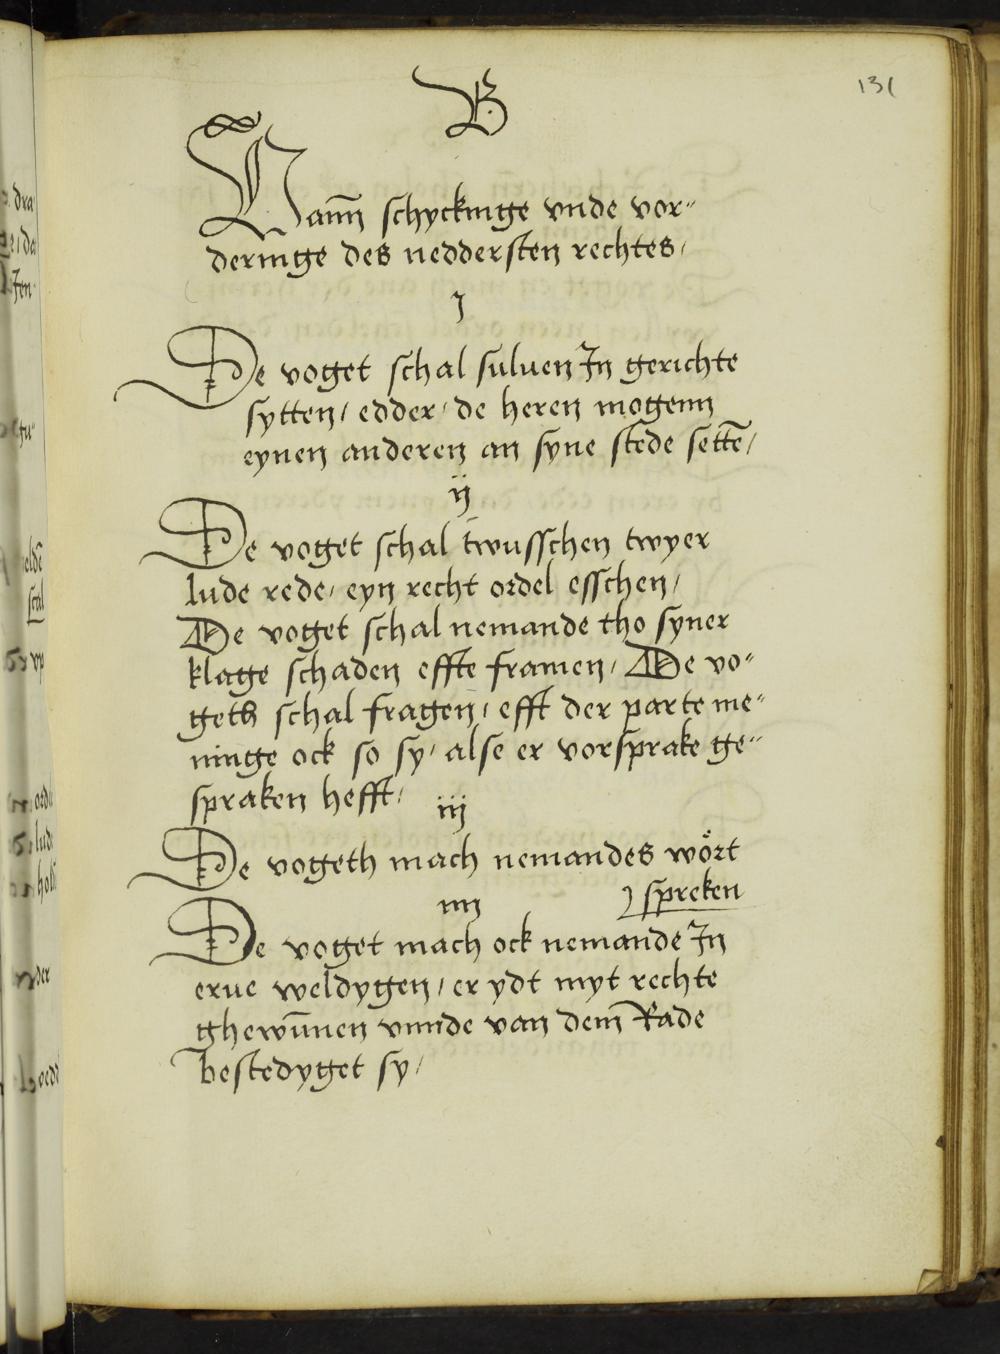 131
B
Vann schyckinge vnde vor"
deringe des neddersten rechtes /
j
De voget schal suluen In gerichte
sytten / edder / de heren mogenn
eynen anderen an syne stede settē /
ij
De voget schal twusschen twyer
lude rede / eyn recht ordel esschen /
De voget schal nemande tho syner
klage schaden effte framen / De vo"
geth schal fragen / efft der parte me"
ninge ock so sy / alse er vorsprake ge"
spraken hefft /
iij
De vogeth mach nemandes wort
spreken
iiij
De voget mach ock nemande In
erue weldygen / er ydt myt rechte
ghewūnen vnnde van dem Rade
bestedyget sy /